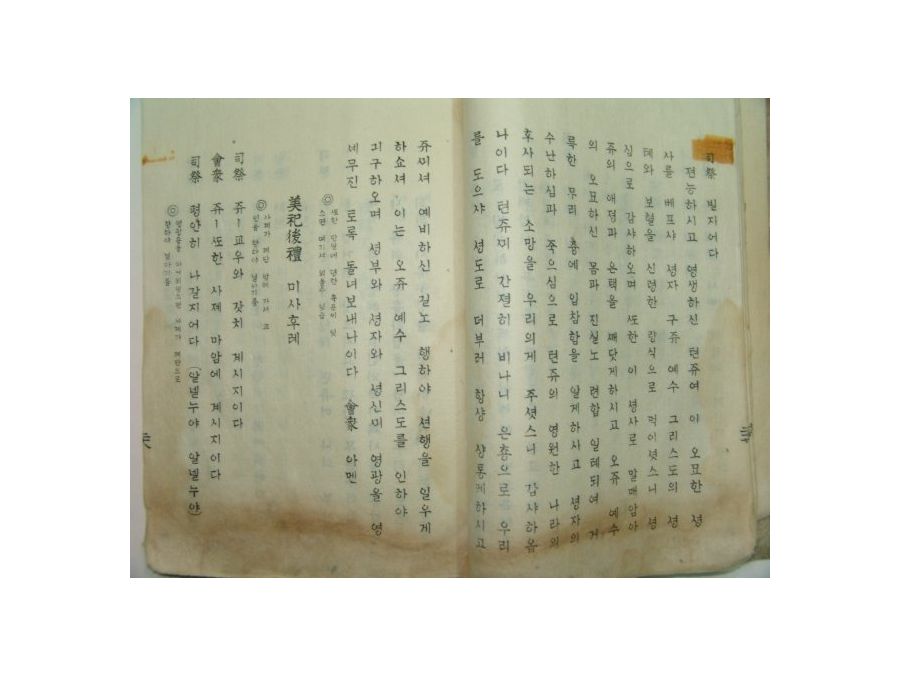 司祭 빌지어다
전능하시고 영생하신 텬쥬여 이 오묘한 셩
사를 베프샤 셩자 구쥬 예수 그리스도의 셩
톄와 보혈을 신령한 량식으로 먹이셧스니 셩
심으로 감샤하오며 또한 이 셩사로 말매암아
쥬의 애졍과 은택을 깨닷게하시고 오쥬 예수
의 오묘하신 몸과 진실노 련합 일톄되여 거
륵한 무리 즁에 임참함을 알게하사고 셩자의
수난하심과 죽으심으로 텬쥬의 영원한 나라의
후사되는 소망을 우리의게 주셧스니 감샤하옴
나이다 텬쥬끠 간졀히 비나니 은춍으로 우리
를 도으샤 셩도로 더부러 항샹 샹통케하시고
쥬끠셔 예비하신 길노 행하야 션행을 일우게
하쇼셔 이는 오쥬 예수 그리스도를 인하야
긔구하오며 셩부와 셩자와 셩신끠 영광을 영
셰무진 토록 돌녀보내나이다 會衆 아멘
◎
美祀後禮 미사후례
◎
司祭 쥬ㅣ교우와 갓치 계시지이다
會衆 쥬ㅣ또한 사졔 마암에 계시지이다
司祭 평안히 나갈지어다 (알넬누야 알넬누야)
◎